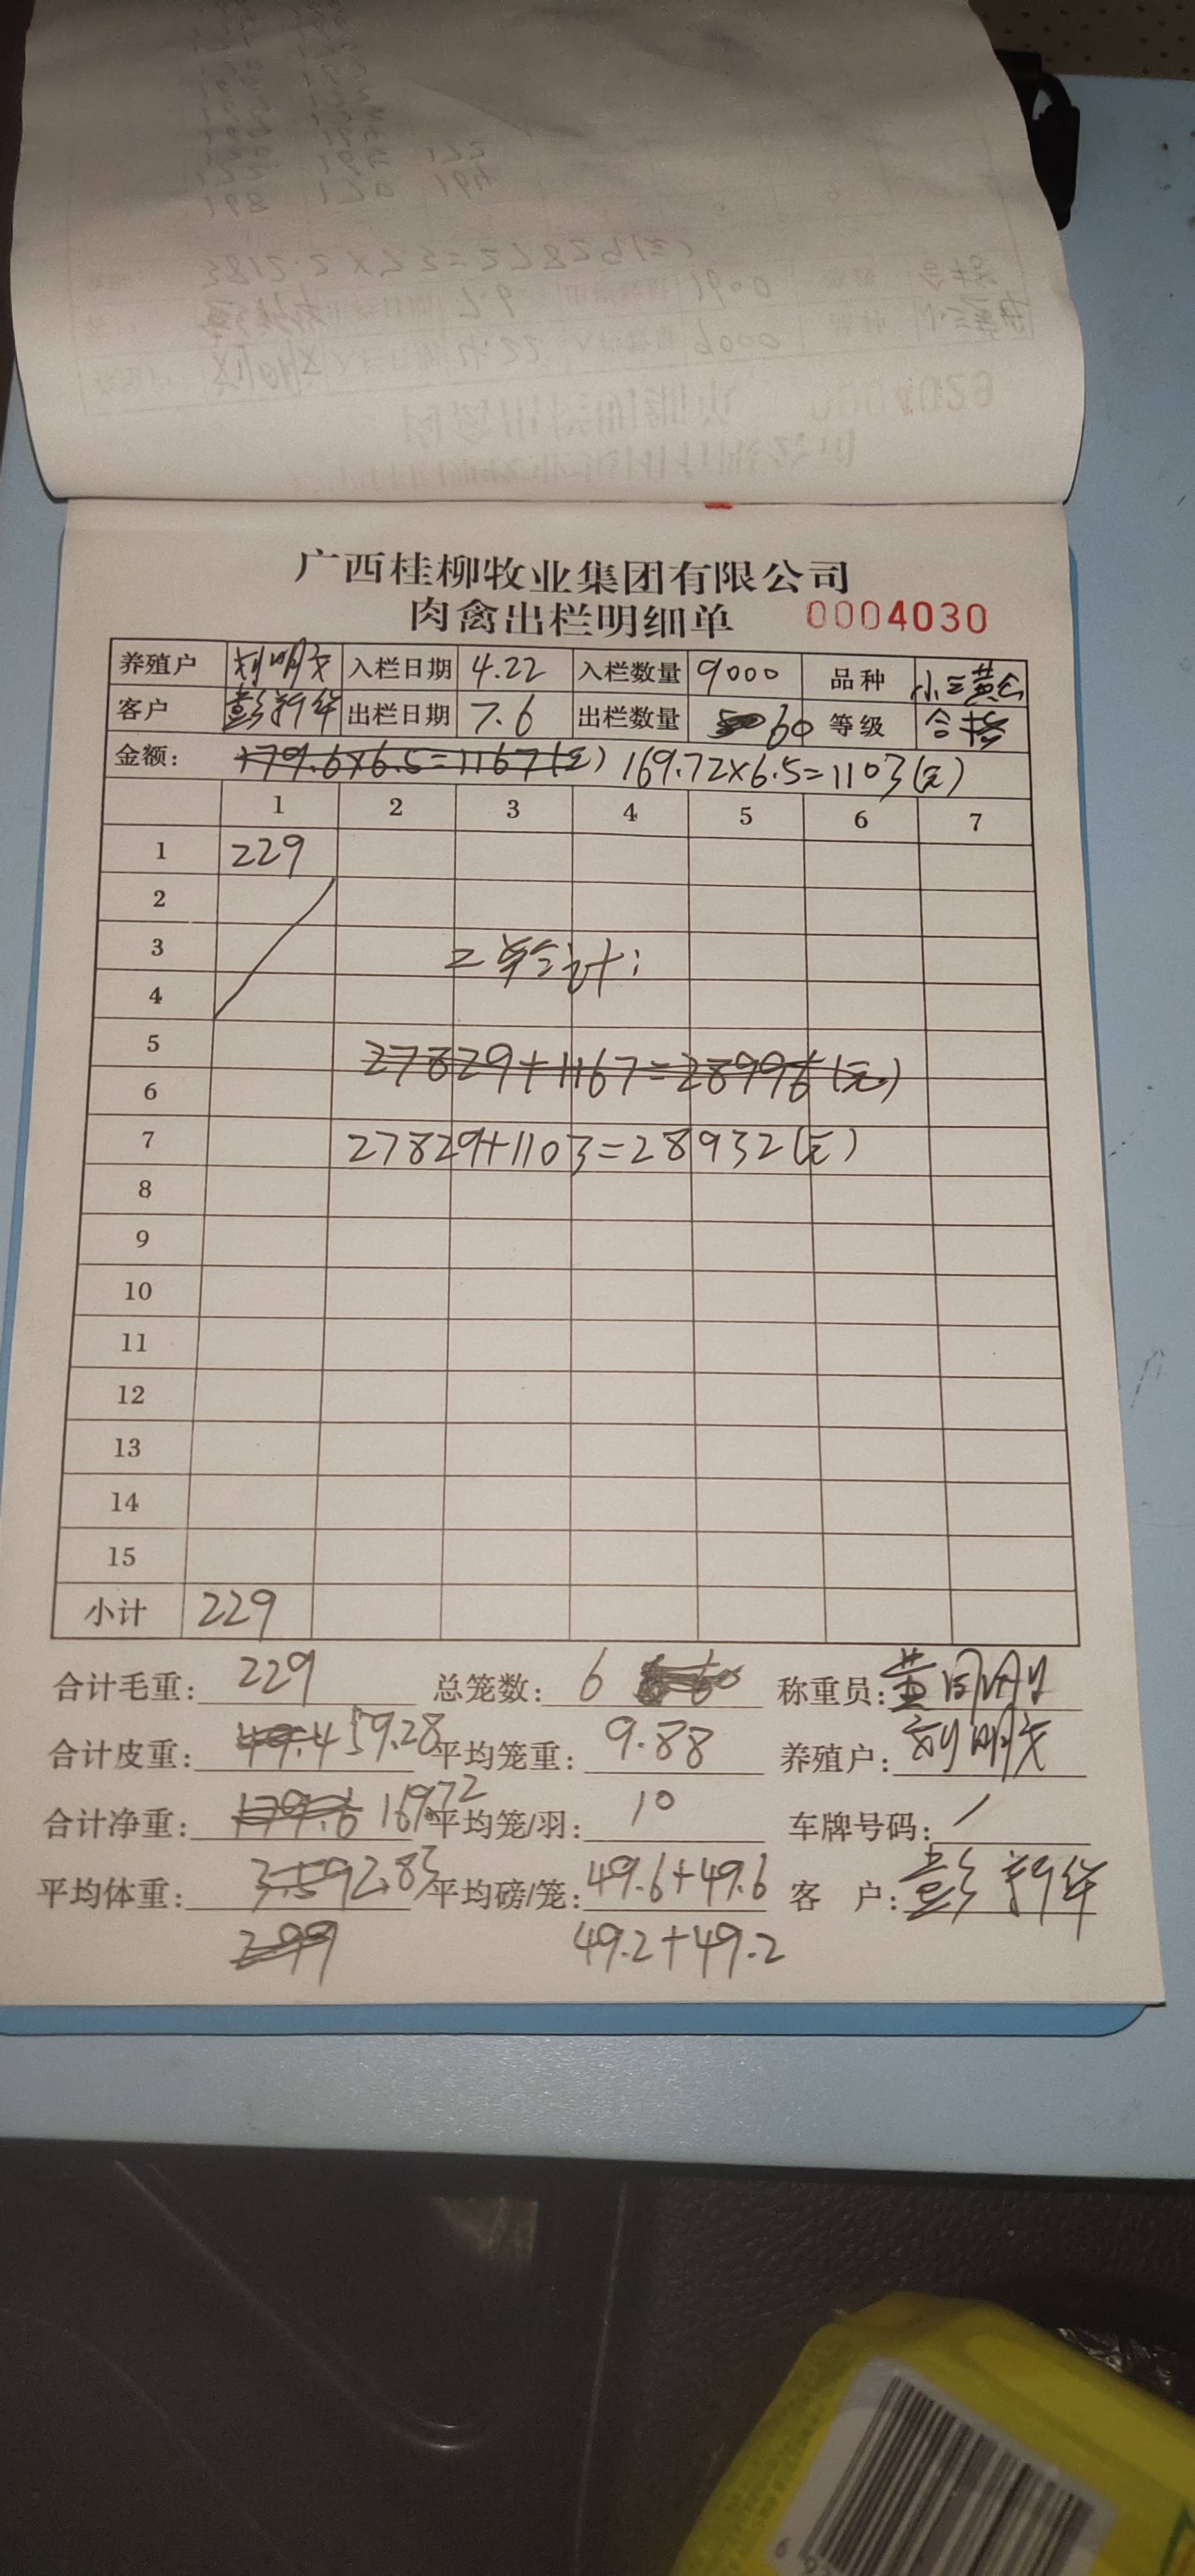 广西桂柳牧业集团有限公司
肉禽出栏明细单 0004030
养殖户 刘明文 入栏日期 4.22 入栏数量 9000 品种 小三黄
客户 彭新华 出栏日期 7.6 出栏数量 60 等级 合格
金额: 179.6×6.5=1167(元) 169.72×6.5=1103(元)
1 2 3 4 5 6 7
1 229
2
3 二单合计:
4
5 27829+1167=28996(元)
6
7 27829+1103=28932(元)
8
9
10
11
12
13
14
15
小计 229
合计毛重: 229 总笼数: 6 称重员: 黄
合计皮重: 49.4 59.28 平均笼重: 9.88 养殖户: 刘明文
合计净重: 179.6 169.72 平均笼/羽: 10 车牌号码: /
平均体重: 3.59 2.83 平均磅/笼: 49.6+49.6 客 户: 彭新华
299 49.2+49.2